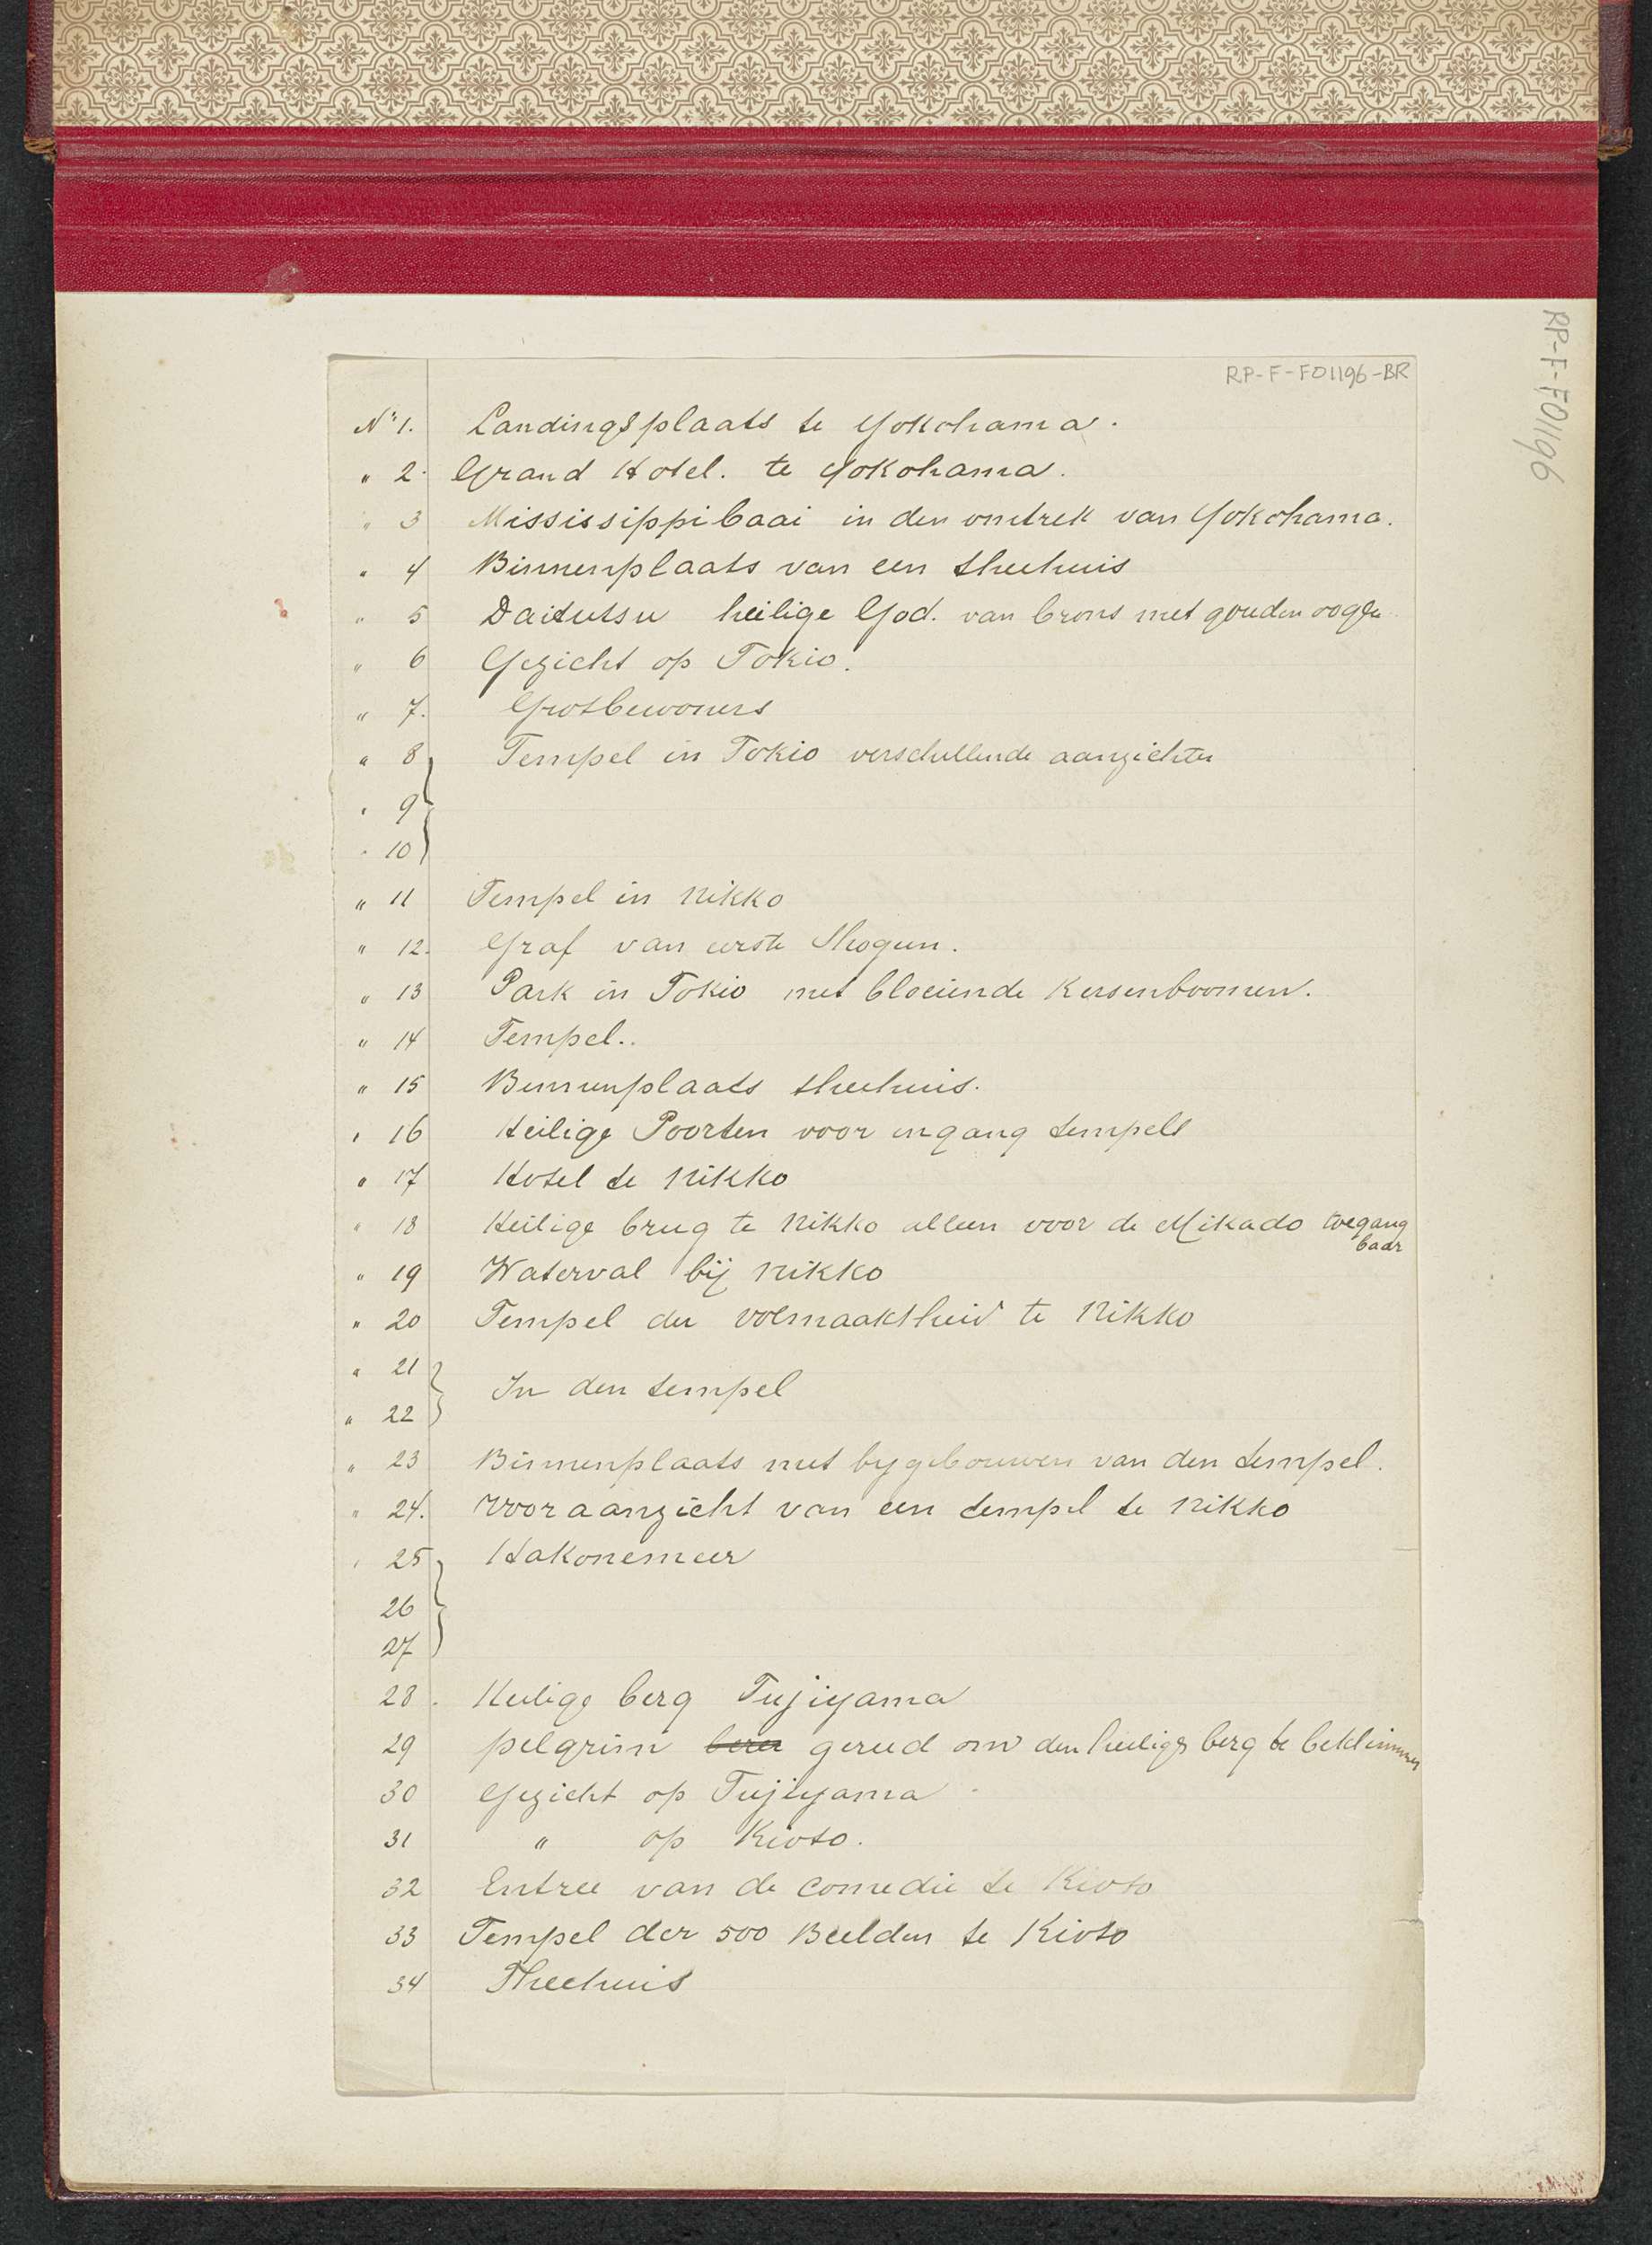 RP-F-F01196
RP-F-F01196-BR
No 1. Landingsplaats te Yokohama.
" 2. Grand Hotel. te Yokohama.
" 3 Mississippibaai in den omtrek van Yokohama.
" 4 Binnenplaats van een theehuis
" 5 Daibutsu heilige God. van brons met gouden oogen
" 6 Gezicht op Tokio.
" 7. Grotbewoners
" 8 Tempel in Tokio verschillende aanzichten
" 9
" 10
" 11 Tempel in Nikko
" 12. Graf van eerste Shogun.
" 13 Park in Tokio met bloeiende Kersenboomen.
" 14 Tempel..
" 15 Binnenplaats theehuis.
" 16 Heilige Poorten voor ingang tempels
" 17 Hotel te Nikko
" 18 Heilige brug te Nikko alleen voor de Mikado toegang
baar
" 19 Waterval bij Nikko
" 20 Tempel der volmaaktheid te Nikko
" 21
In den tempel
" 22
" 23 Binnenplaats met bygebouwen van den tempel.
" 24. Vooraanzicht van een tempel te Nikko
" 25 Hakonemeer
26
27
28. Heilige berg Fujiyama
29 pelgrim gereed om den heilige berg te beklimmen
30 Gezicht op Fujiyama
31 " op Kioto.
32 Entree van de comedie te Kioto
33 Tempel der 500 Beelden te Kioto
34 Theehuis